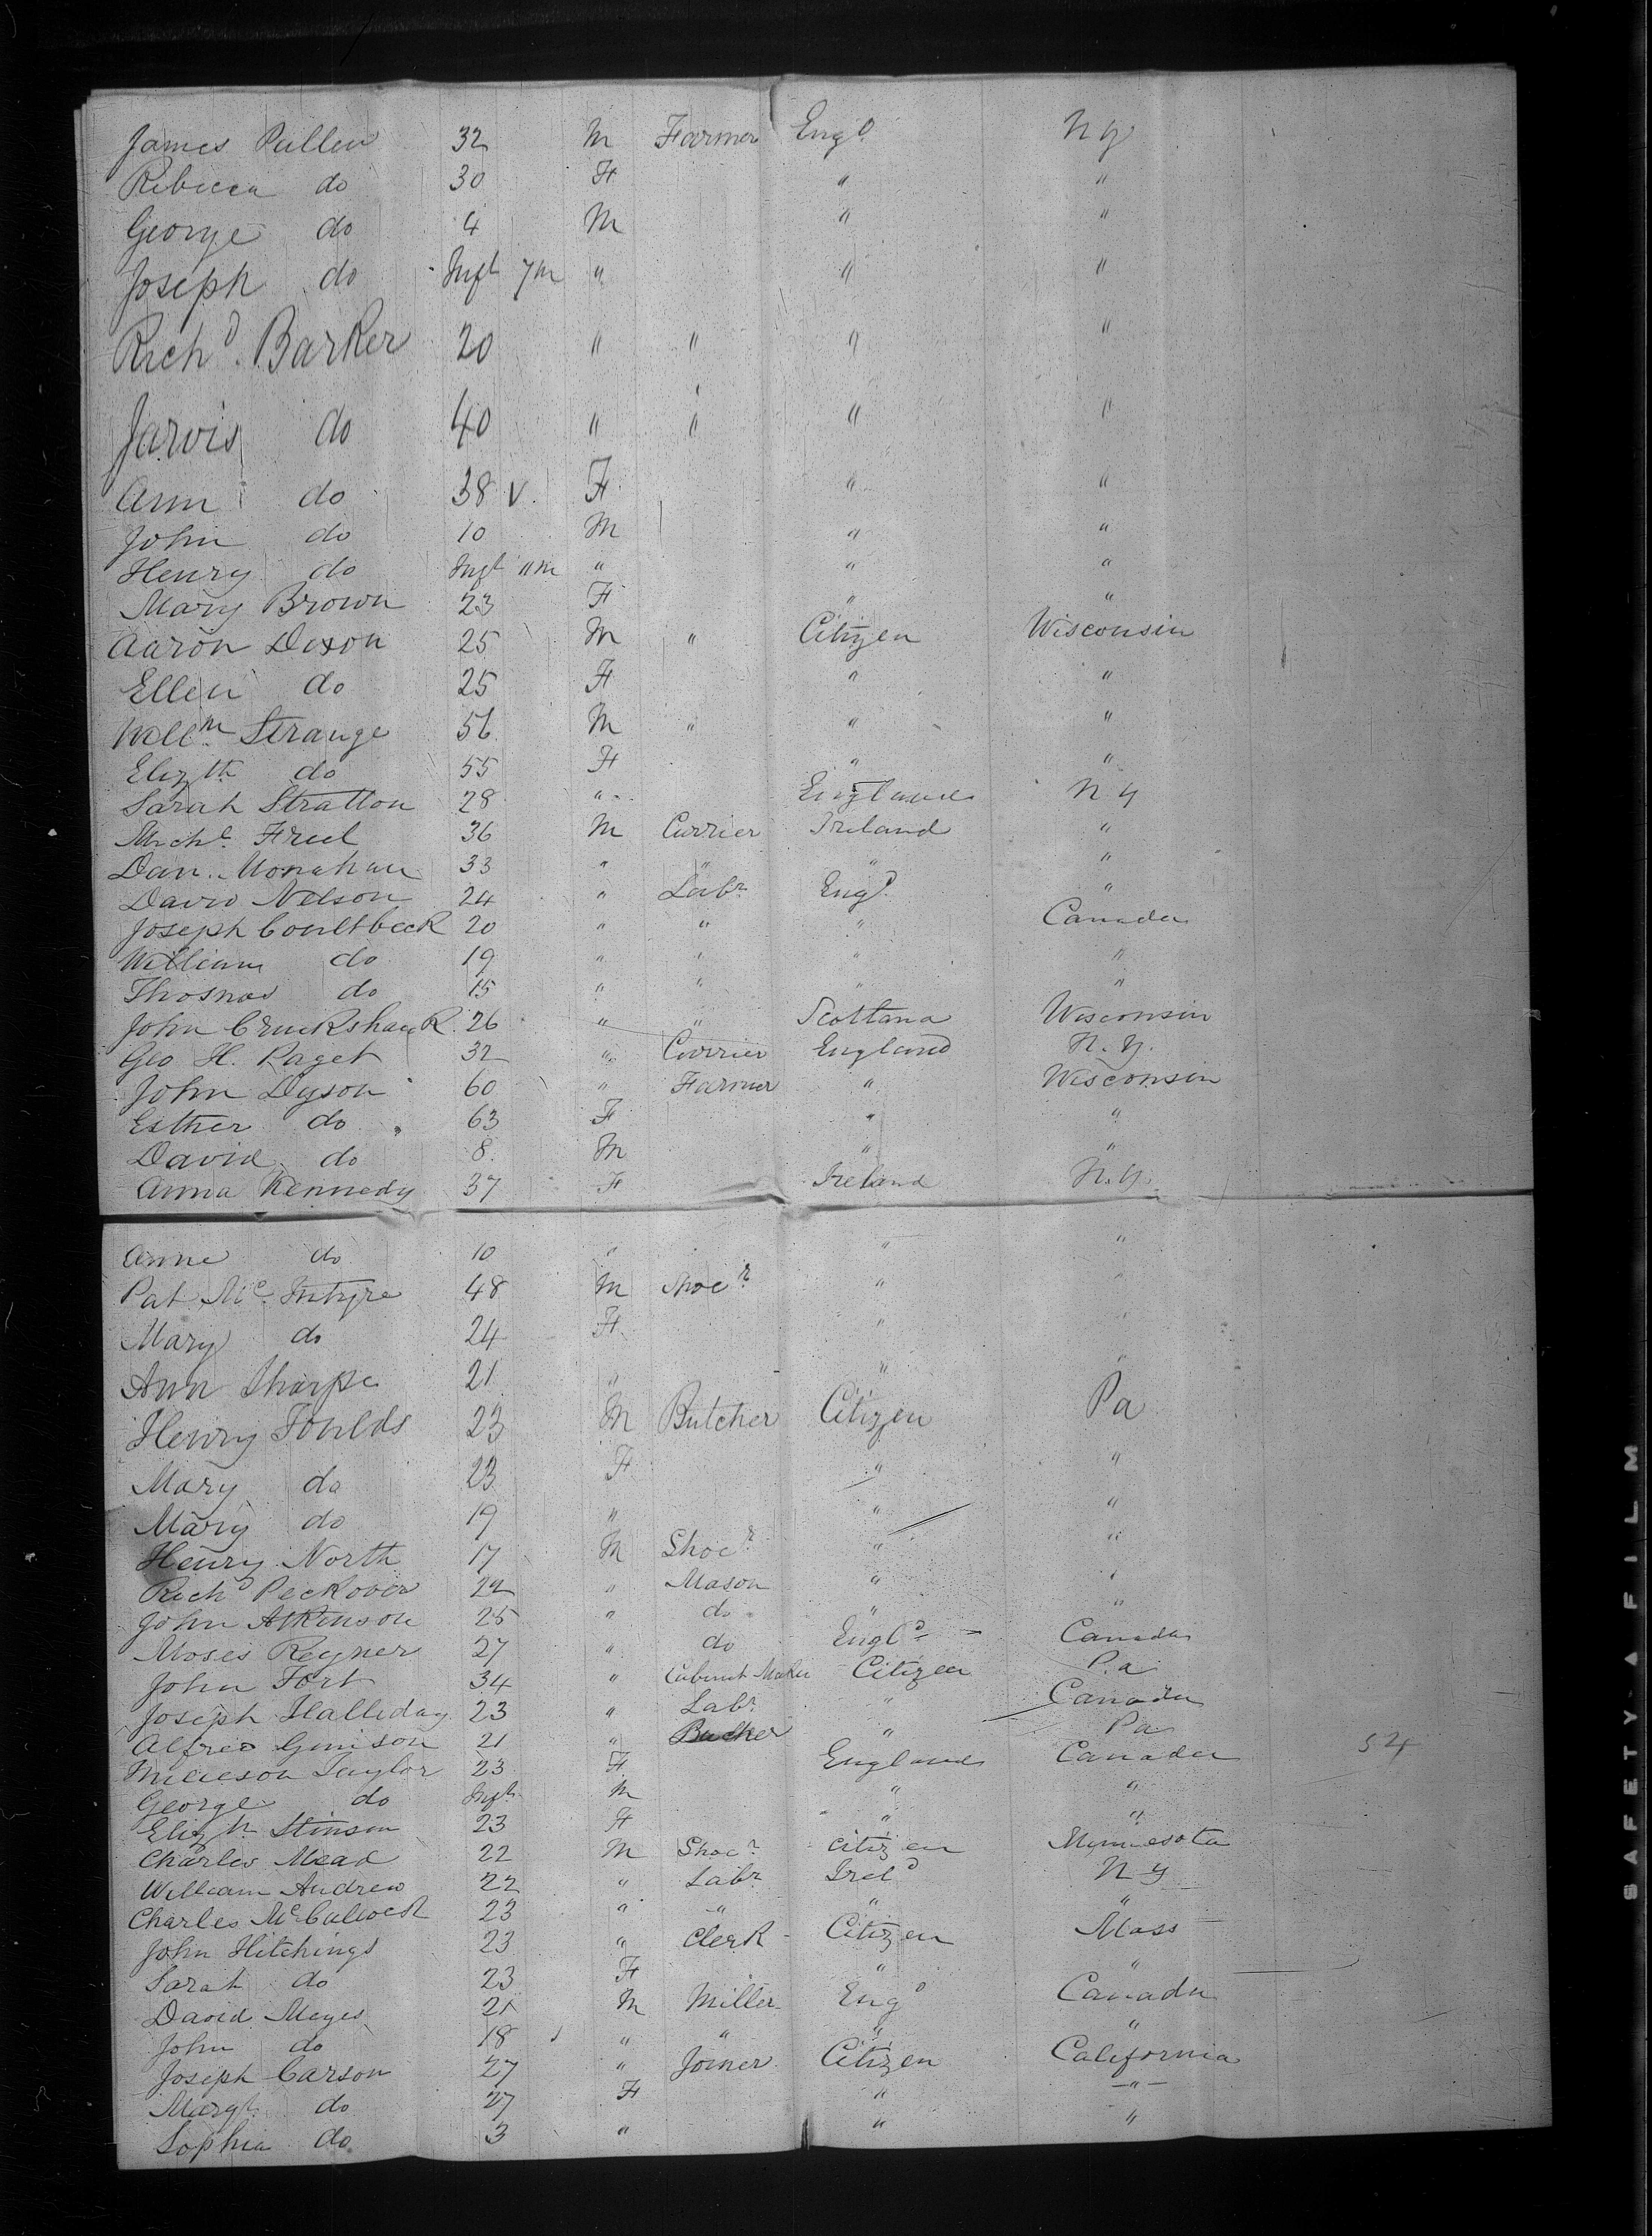 James Pullen 32 M Farmer Engd N Y
Rebecca do 30 F " "
George do 4 M " "
Joseph do Inft 7m " " "
Richd. Barker 20 " " " "
Jarvis do 40 " " " "
Ann do 38 v. F " "
John do 10 M " "
Henry do Inft 11m " " "
Mary Brown 23 F " "
Aaron Dixon 25 M " Citizen Wisconsin
Ellen do 25 F " "
Willm Strange 56 M " " "
Elizth do 55 F " "
Sarah Stratton 28 " England N Y
Michl. Freel 36 M Currier Ireland "
Dan. Monahan 33 " " " "
David Nelson 24 " Labr Engd. "
Joseph Coultbeck 20 " " " Canada
William do 19 " " " "
Thosmas do 15 " " " "
John Cruckshank. 26 " " Scotland Wisconsin
Geo H. Paget 32 " Currier England N. Y.
John Dyson 60 " Farmer " Wisconsin
Esther do 63 F " "
David do 8. M " "
Anna Kennedy 37 F Ireland N.Y.
Anne do 10 " " "
Pat Mc. Intyre 48 M Shoer " "
Mary do 24 F " "
Ann Sharpe 21 " " "
Henry Foulds 23 M Butcher Citizen Pa
Mary do 23 F " "
Mary do 19 " " "
Henry North 17 M Shoer " "
Richd Peckover 22 " Mason " "
John Atkinson 25 " do " "
Moses Reyner 27 " do Engld Canada
John Fort 34 " Cabinet Maker Citizen P.a
Joseph Halliday 23 " Labr. " Canada
Alfred Gunison 21 " " Pa
Taylor 23 F England Canada 54
George do Inft M " "
Elizth Stinson 23 F " "
Charles Mead 22 M Shoer Citizen Minnesota
William Andrew 22 " Labr Ireld N Y
Charles McCullock 23 " " " "
John Hitchings 23 " Clerk Citizen Mass
Sarah do 23 F " "
David Meyes 21 M Miller Engd Canada
John do 18 " " " "
Joseph Carson 27 " Joiner Citizen California
Margt. do 27 F " "
Sophia do 3 " " "
SAFETY A FILM